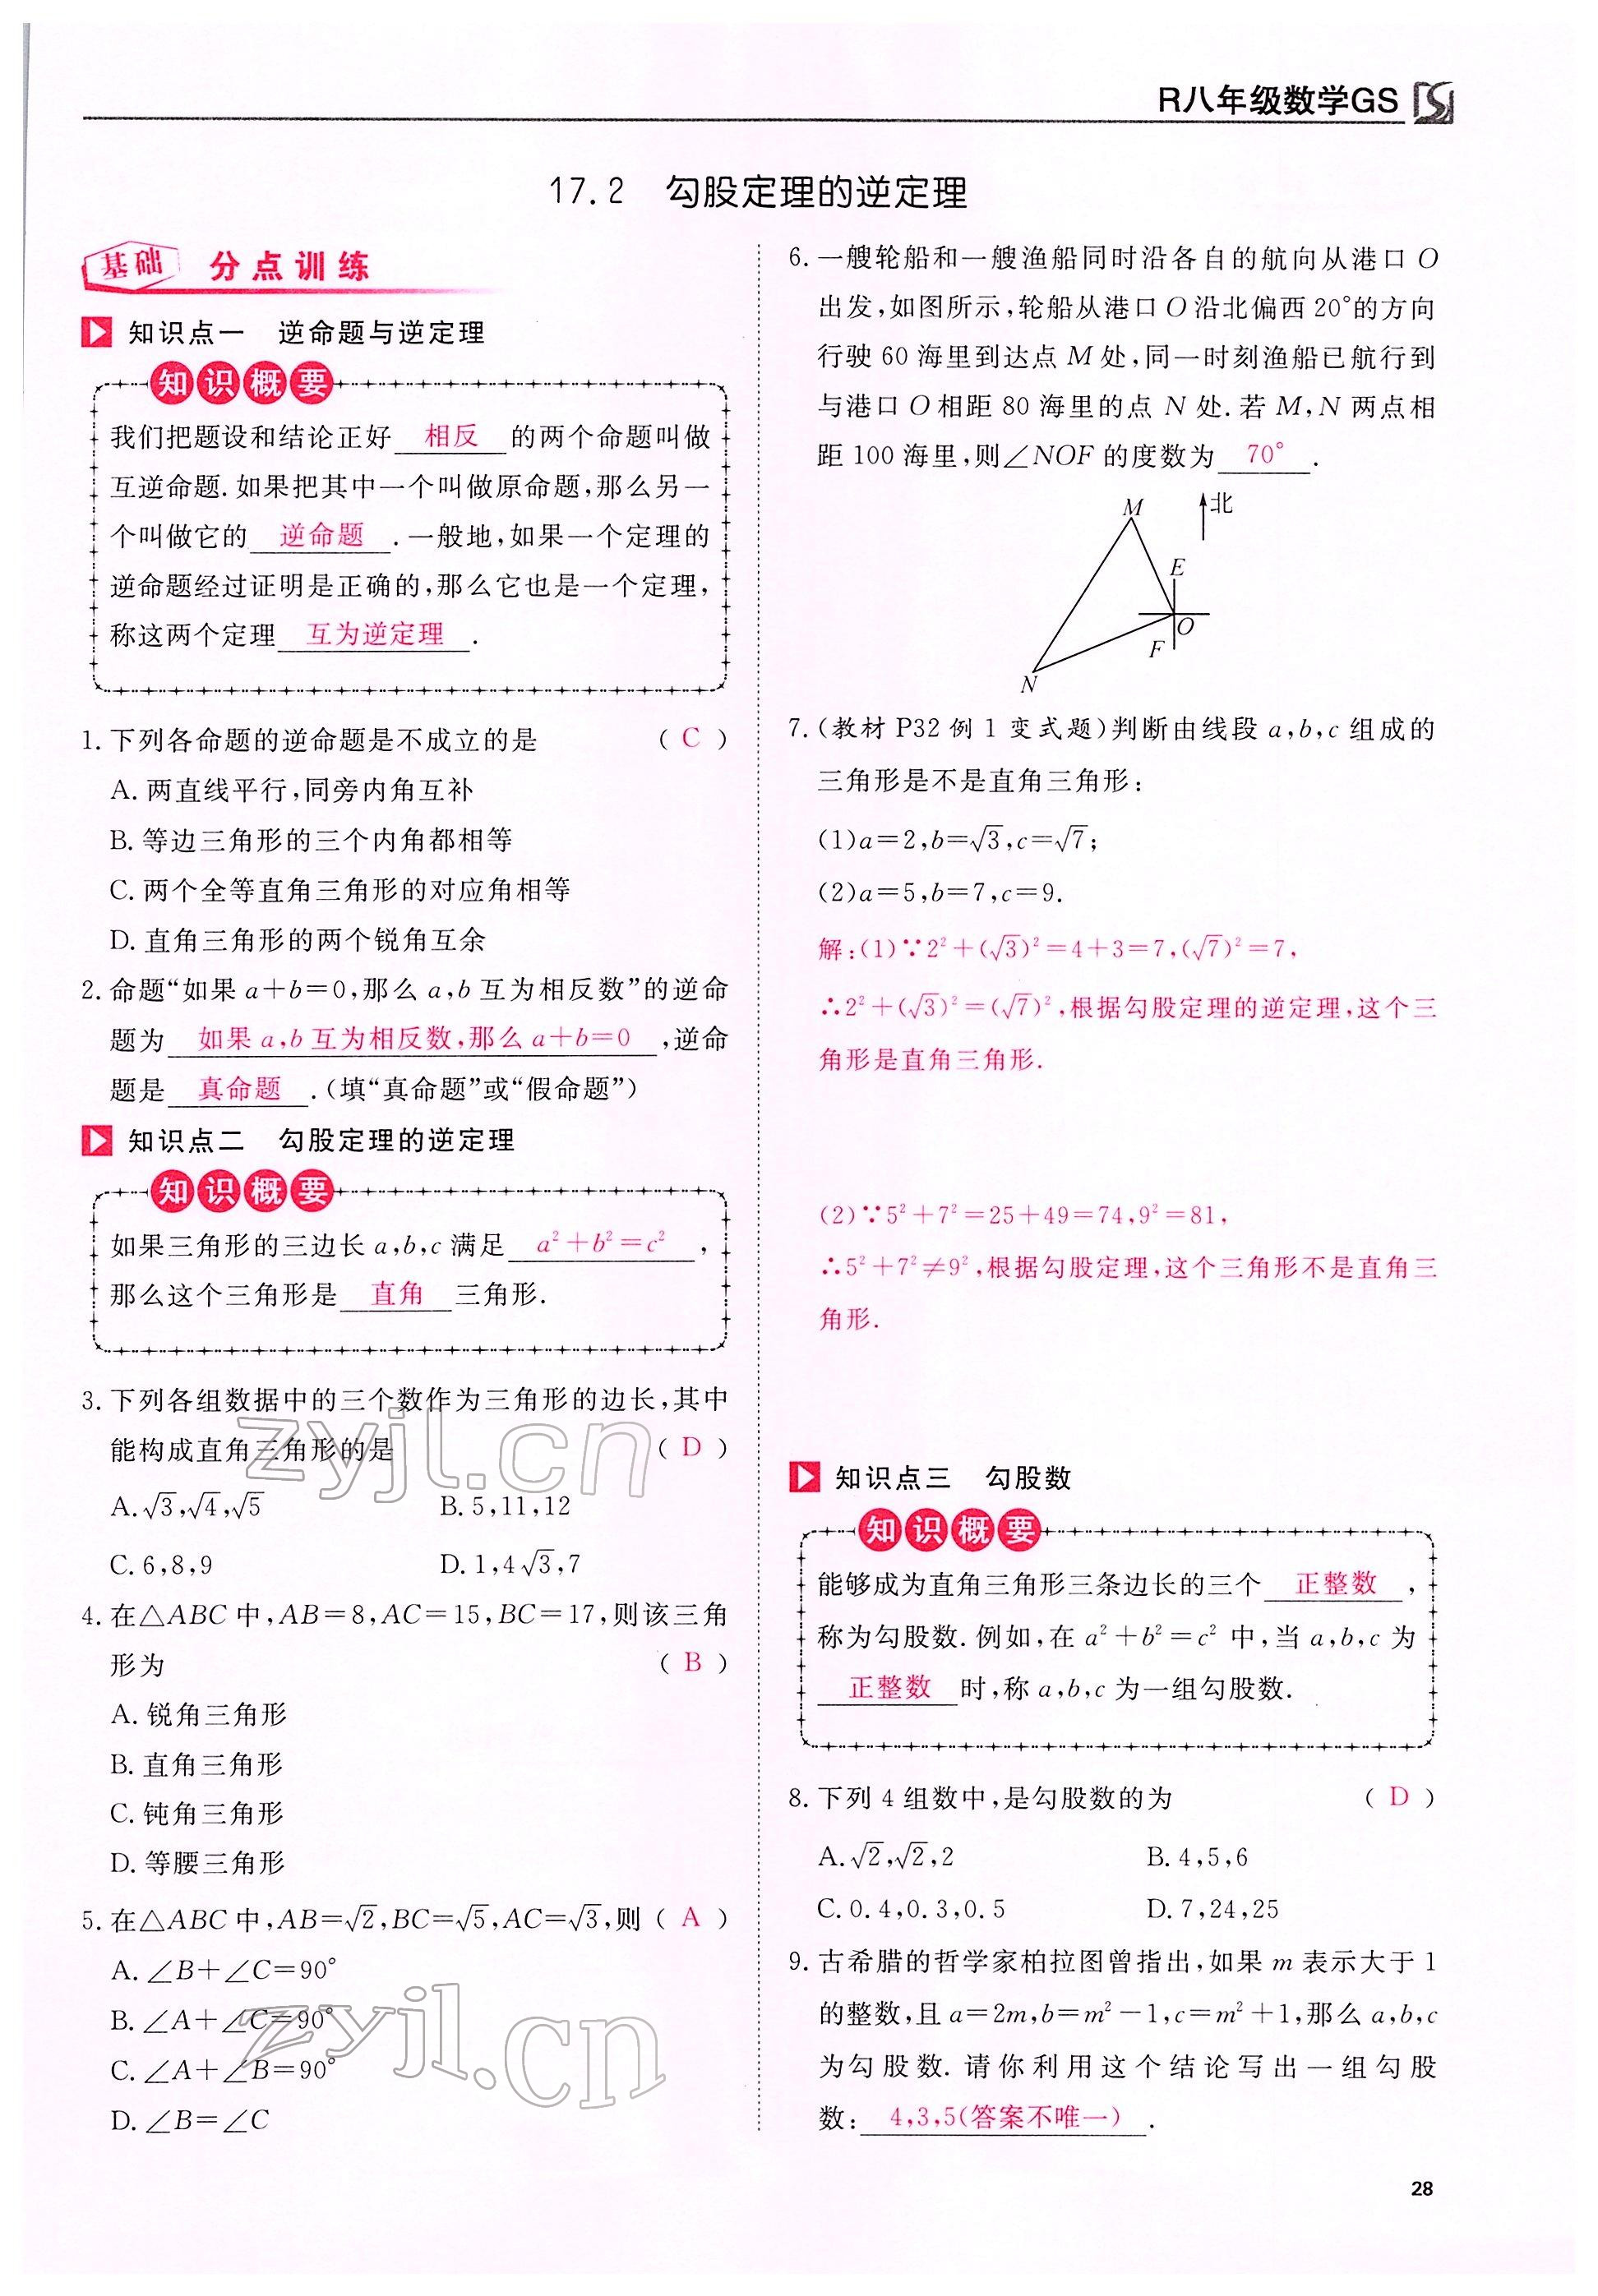 R八年级数学GS
17.2 勾股定理的逆定理
基础 分点训练
知识点一 逆命题与逆定理
知识概要
我们把题设和结论正好 相反 的两个命题叫做
互逆命题.如果把其中一个叫做原命题,那么另一
个叫做它的 逆命题 .一般地,如果一个定理的
逆命题经过证明是正确的,那么它也是一个定理,
称这两个定理 互为逆定理 .
1.下列各命题的逆命题是不成立的是 ( C )
A.两直线平行,同旁内角互补
B.等边三角形的三个内角都相等
C.两个全等直角三角形的对应角相等
D.直角三角形的两个锐角互余
2.命题“如果a+b=0,那么a,b互为相反数”的逆命
题为 如果a,b互为相反数,那么a+b=0 ,逆命
题是 真命题 .(填“真命题”或“假命题”)
知识点二 勾股定理的逆定理
知识概要
如果三角形的三边长a,b,c满足 a²+b²=c² ,
那么这个三角形是 直角 三角形.
3.下列各组数据中的三个数作为三角形的边长,其中
能构成直角三角形的是 ( D )
A.√3,√4,√5 B.5,11,12
C.6,8,9 D.1,4√3,7
4.在△ABC中,AB=8,AC=15,BC=17,则该三角
形为 ( B )
A.锐角三角形
B.直角三角形
C.钝角三角形
D.等腰三角形
5.在△ABC中,AB=√2,BC=√5,AC=√3,则 ( A )
A.∠B+∠C=90°
B.∠A+∠C=90°
C.∠A+∠B=90°
D.∠B=∠C
6.一艘轮船和一艘渔船同时沿各自的航向从港口O
出发,如图所示,轮船从港口O沿北偏西20°的方向
行驶60海里到达点M处,同一时刻渔船已航行到
与港口O相距80海里的点N处.若M,N两点相
距100海里,则∠NOF的度数为 70° .
M 北
E
O
F
N
7.(教材P32例1变式题)判断由线段a,b,c组成的
三角形是不是直角三角形:
(1)a=2,b=√3,c=√7;
(2)a=5,b=7,c=9.
解:(1)∵2²+(√3)²=4+3=7,(√7)²=7,
∴2²+(√3)²=(√7)²,根据勾股定理的逆定理,这个三
角形是直角三角形.
(2)∵5²+7²=25+49=74,9²=81,
∴5²+7²≠9²,根据勾股定理,这个三角形不是直角三
角形.
知识点三 勾股数
知识概要
能够成为直角三角形三条边长的三个 正整数 ,
称为勾股数.例如,在a²+b²=c²中,当a,b,c为
正整数 时,称a,b,c为一组勾股数.
8.下列4组数中,是勾股数的为 ( D )
A.√2,√2,2 B.4,5,6
C.0.4,0.3,0.5 D.7,24,25
9.古希腊的哲学家柏拉图曾指出,如果m表示大于1
的整数,且a=2m,b=m²-1,c=m²+1,那么a,b,c
为勾股数.请你利用这个结论写出一组勾股
数: 4,3,5(答案不唯一) .
28
zyjl.cn
zyjl.cn